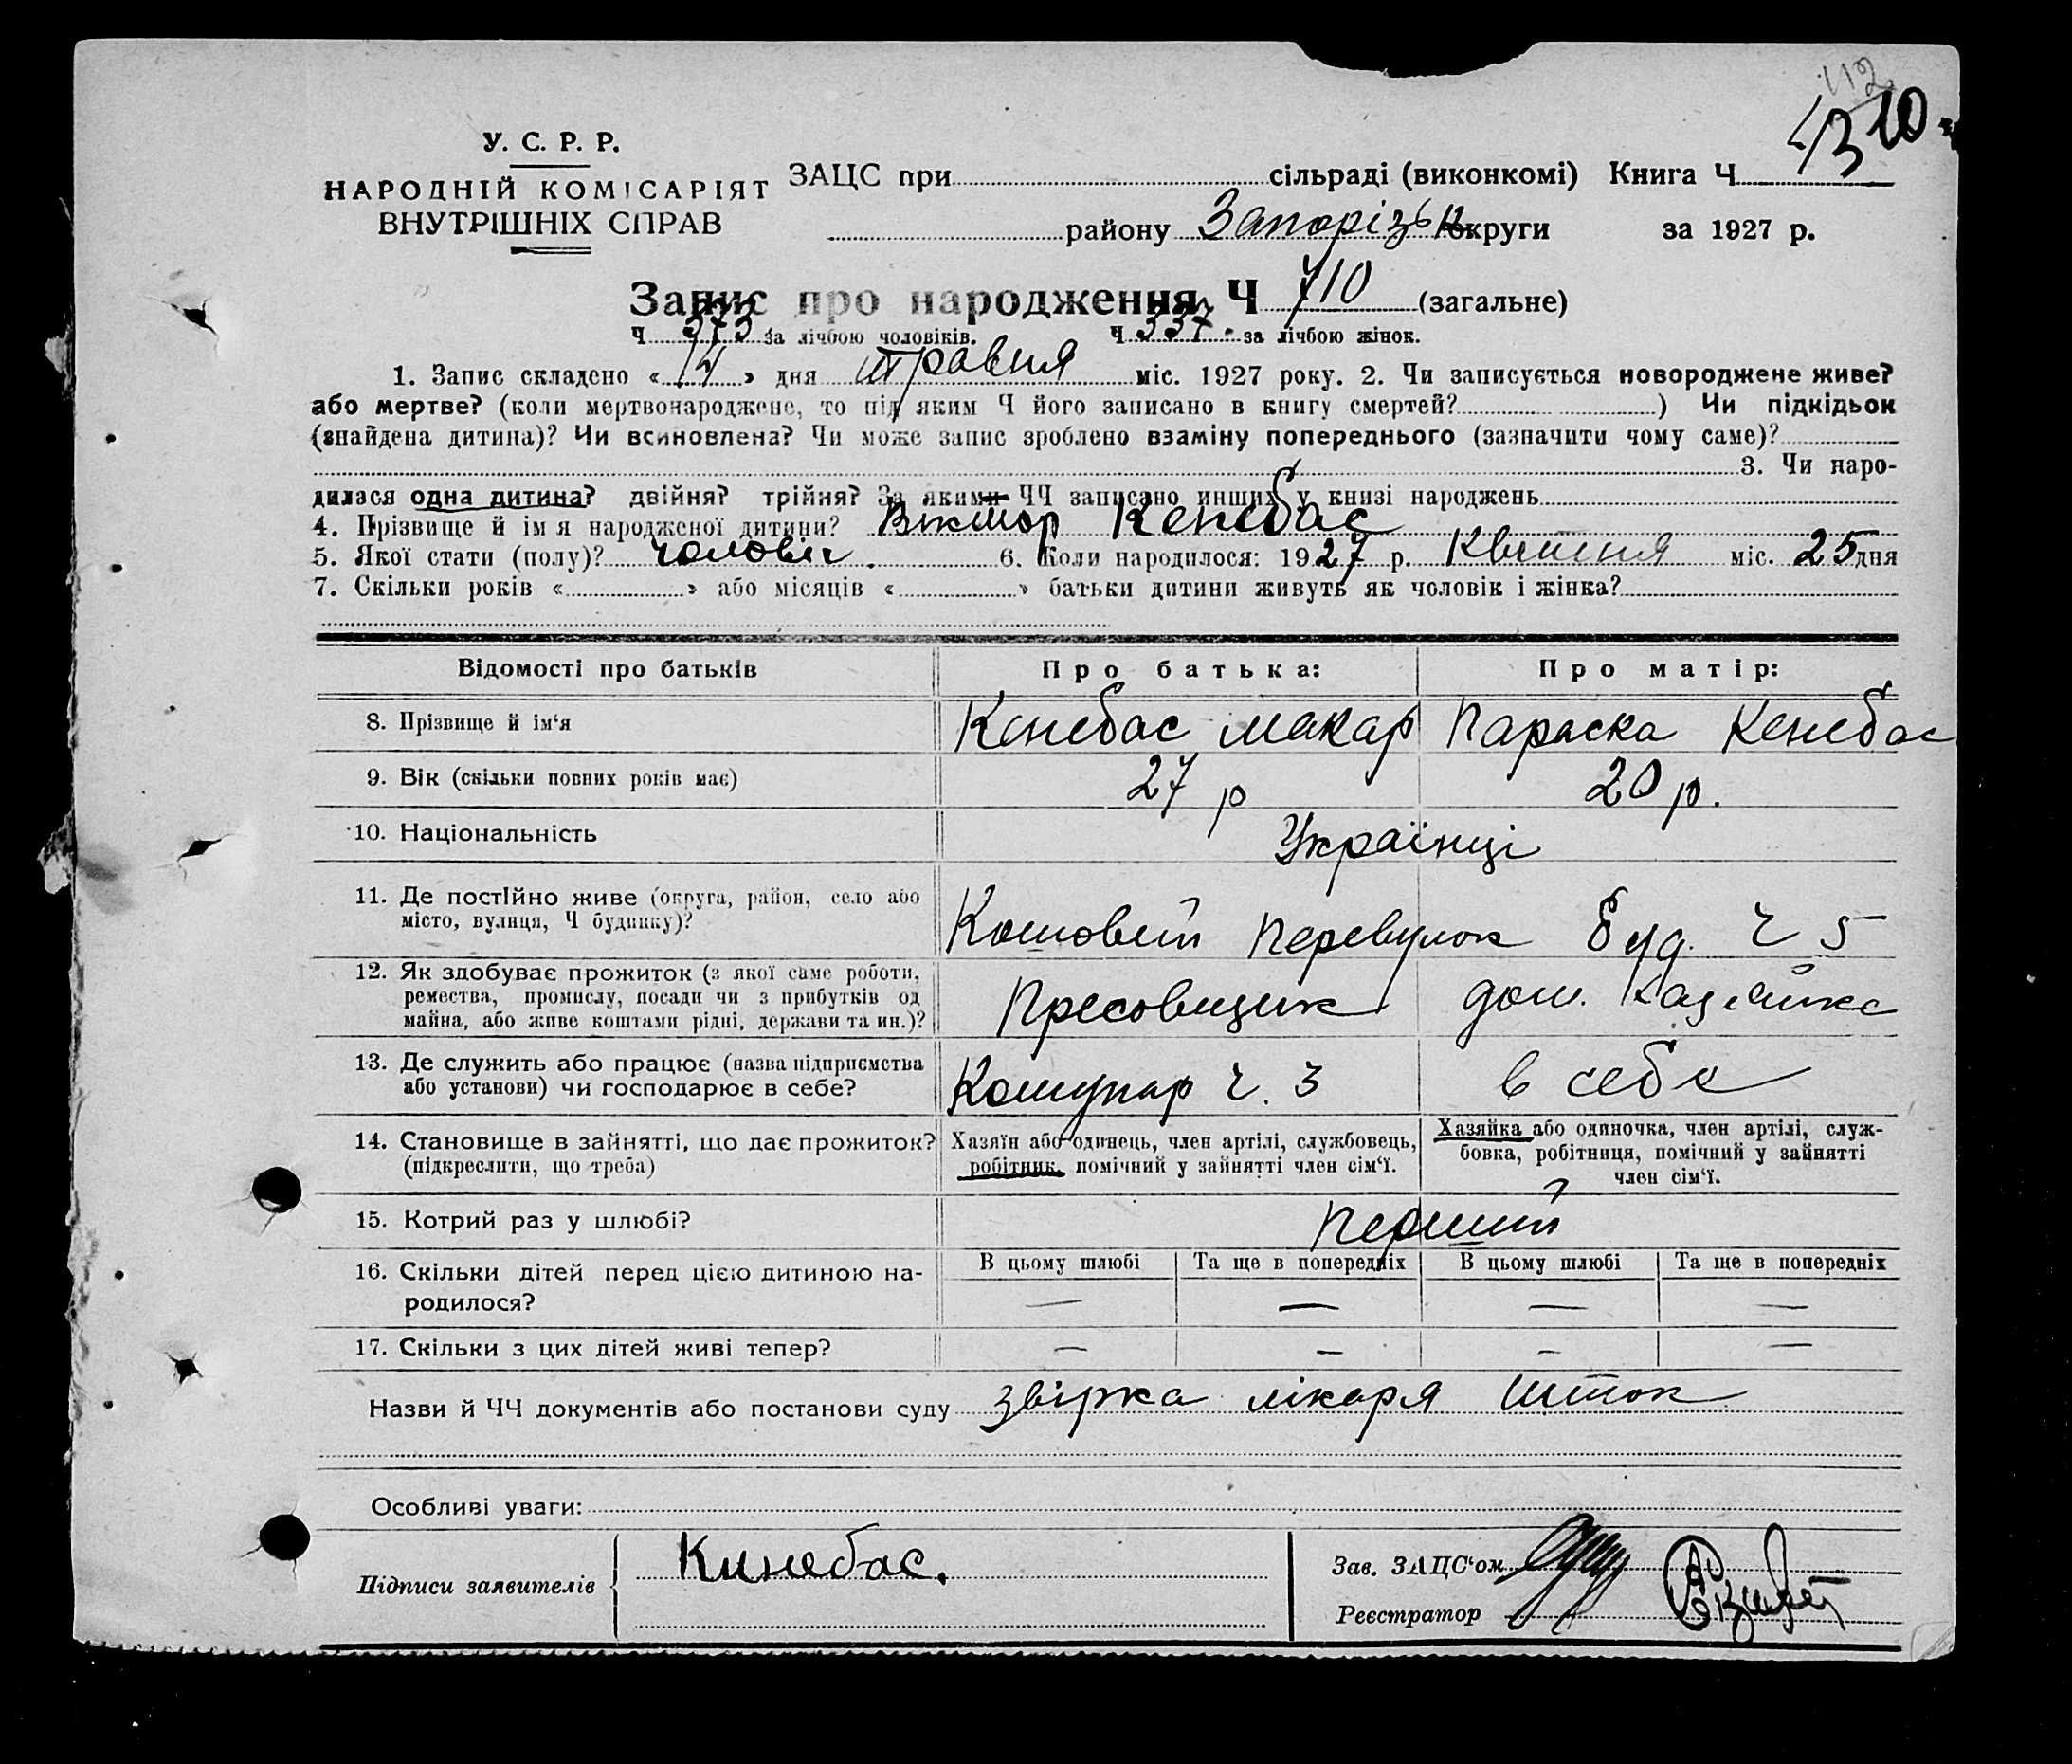 112
310
У. С. Р. Р.
НАРОДНІЙ КОМІСАРІЯТ
ВНУТРІШНІХ СПРАВ
ЗАЦС при сільраді (виконкомі) Книга Ч
району Запорізьк округи за 1927 р.
Запис про народження Ч 710 (загальне)
Ч 373 за лічбою чоловіків. Ч 337 за лічбою жінок.
1. Запис складено « 14 » дня травня міс. 1927 року. 2. Чи записується новороджене живе?
або мертве? (коли мертвонароджене, то під яким Ч його записано в книгу смертей? ) Чи підкідьок
(знайдена дитина)? Чи всиновлена? Чи може запис зроблено взаміну попереднього (зазначити чому саме)?
3. Чи наро-
дилася одна дитина? двійня? трійня? За якими ЧЧ записано инших у книзі народжень
4. Прізвище й ім я народженої дитини? Віктор Кенебас
5. Якої стати (полу)? чоловіч. 6. Коли народилося: 1927 р. Квітня міс. 25 дня
7. Скільки років « » або місяців « » батьки дитини живуть як чоловік і жінка?
Відомості про батьків Про батька: Про матір:
8. Прізвище й ім‘я Кенебас Макар Параска Кенебас
9. Вік (скільки повних років має) 27 р 20 р.
10. Національність Українці
11. Де постійно живе (округа, район, село або
місто, вулиця, Ч будинку)? Кошовий Перевулок Буд. Ч 5
12. Як здобуває прожиток (з якої саме роботи,
ремества, промислу, посади чи з прибутків од
майна, або живе коштами рідні, держави та ин.)? Пресовщик дом. Хазяйка
13. Де служить або працює (назва підприємства
або установи) чи господарює в себе? Комунар Ч. 3 в себе
14. Становище в зайнятті, що дає прожиток?
(підкреслити, що треба)
Хазяїн або одинець, член артілі, службовець,
робітник, помічний у зайнятті член сім‘ї.
Хазяйка або одиночка, член артілі, служ-
бовка, робітниця, помічний у зайнятті
член сім‘ї.
15. Котрий раз у шлюбі? Перший
16. Скільки дітей перед цією дитиною на-
родилося?
В цьому шлюбі Та ще в попередніх В цьому шлюбі Та ще в попередніх
— — — —
17. Скільки з цих дітей живі тепер? — — — —
Назви й ЧЧ документів або постанови суду звірка лікаря Шток
Особливі уваги:
Підписи заявителів Кинебас.
Зав. ЗАЦС‘ом
Реєстратор